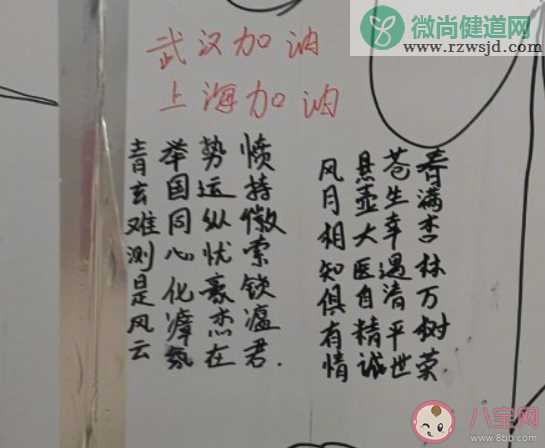 微尚健道网
www.rzwsjd.com
武汉加油
上海加油
青玄难测是风云
举国同心化瘴氛
势运纵忧豪杰在
愤持徽索锁瘟君.
风月相知俱有情
悬壶大医自精诚
苍生幸遇清平世
春满杏林万树荣
八宝网
www.8bb.com